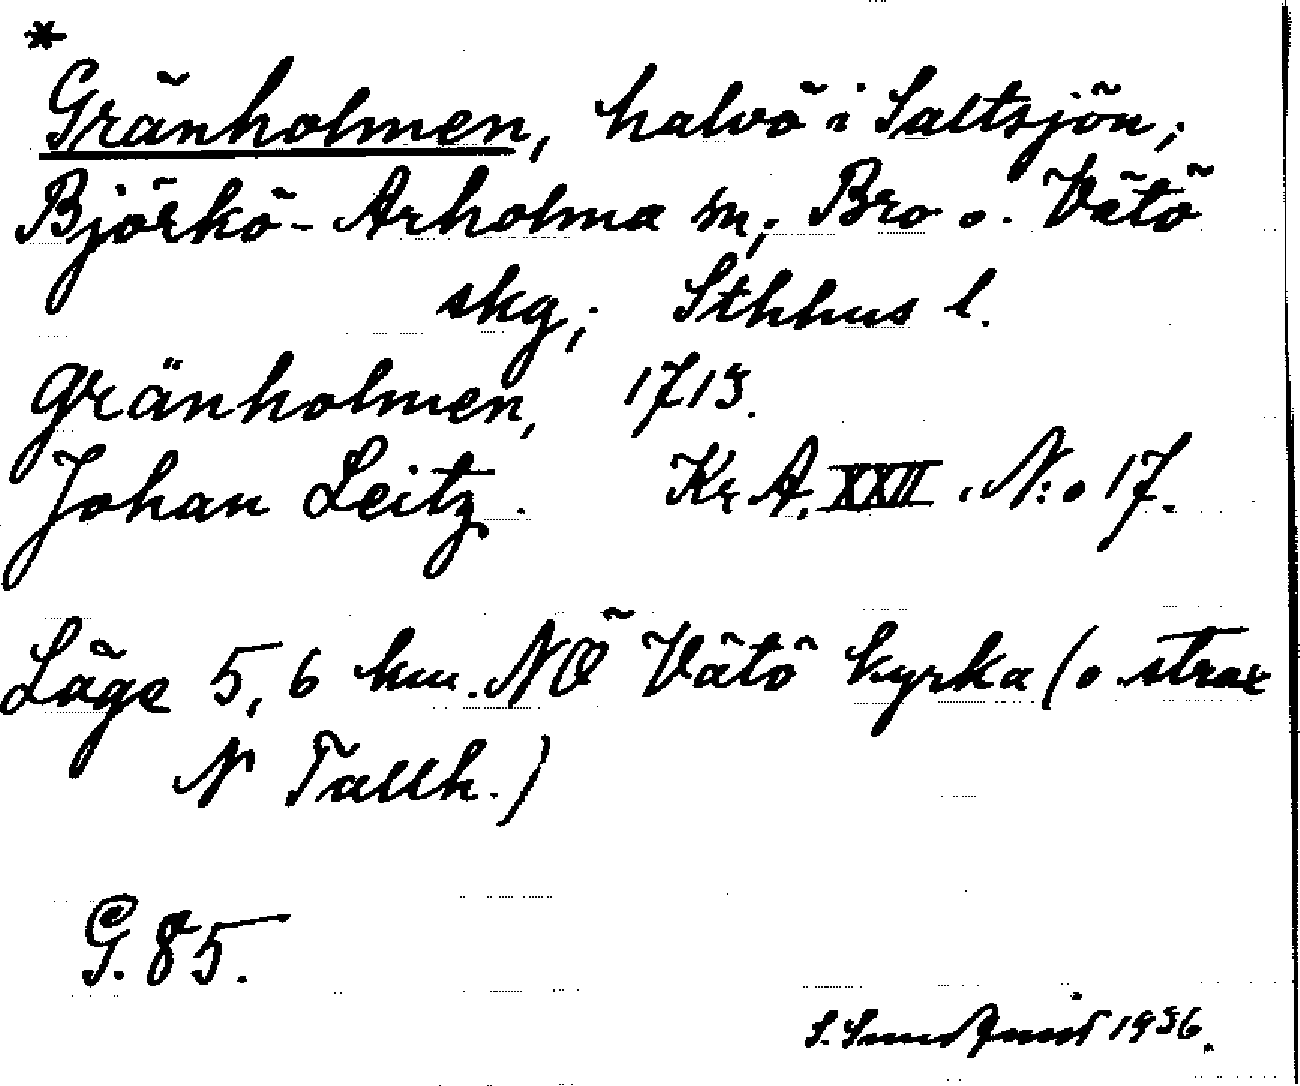 *
Gränholmen, halvö i Saltsjön;
Björkö-Arholma sn; Bro o. Vätö
skg; Sthhus l.
Gränholmen, 1713.
Johan Leitz. Kr. A. XXII. N:o 17.
Läge 5,6 km. NÖ Vätö kyrka (o strax
N Tallh.)
G. 85.
S. 1936.